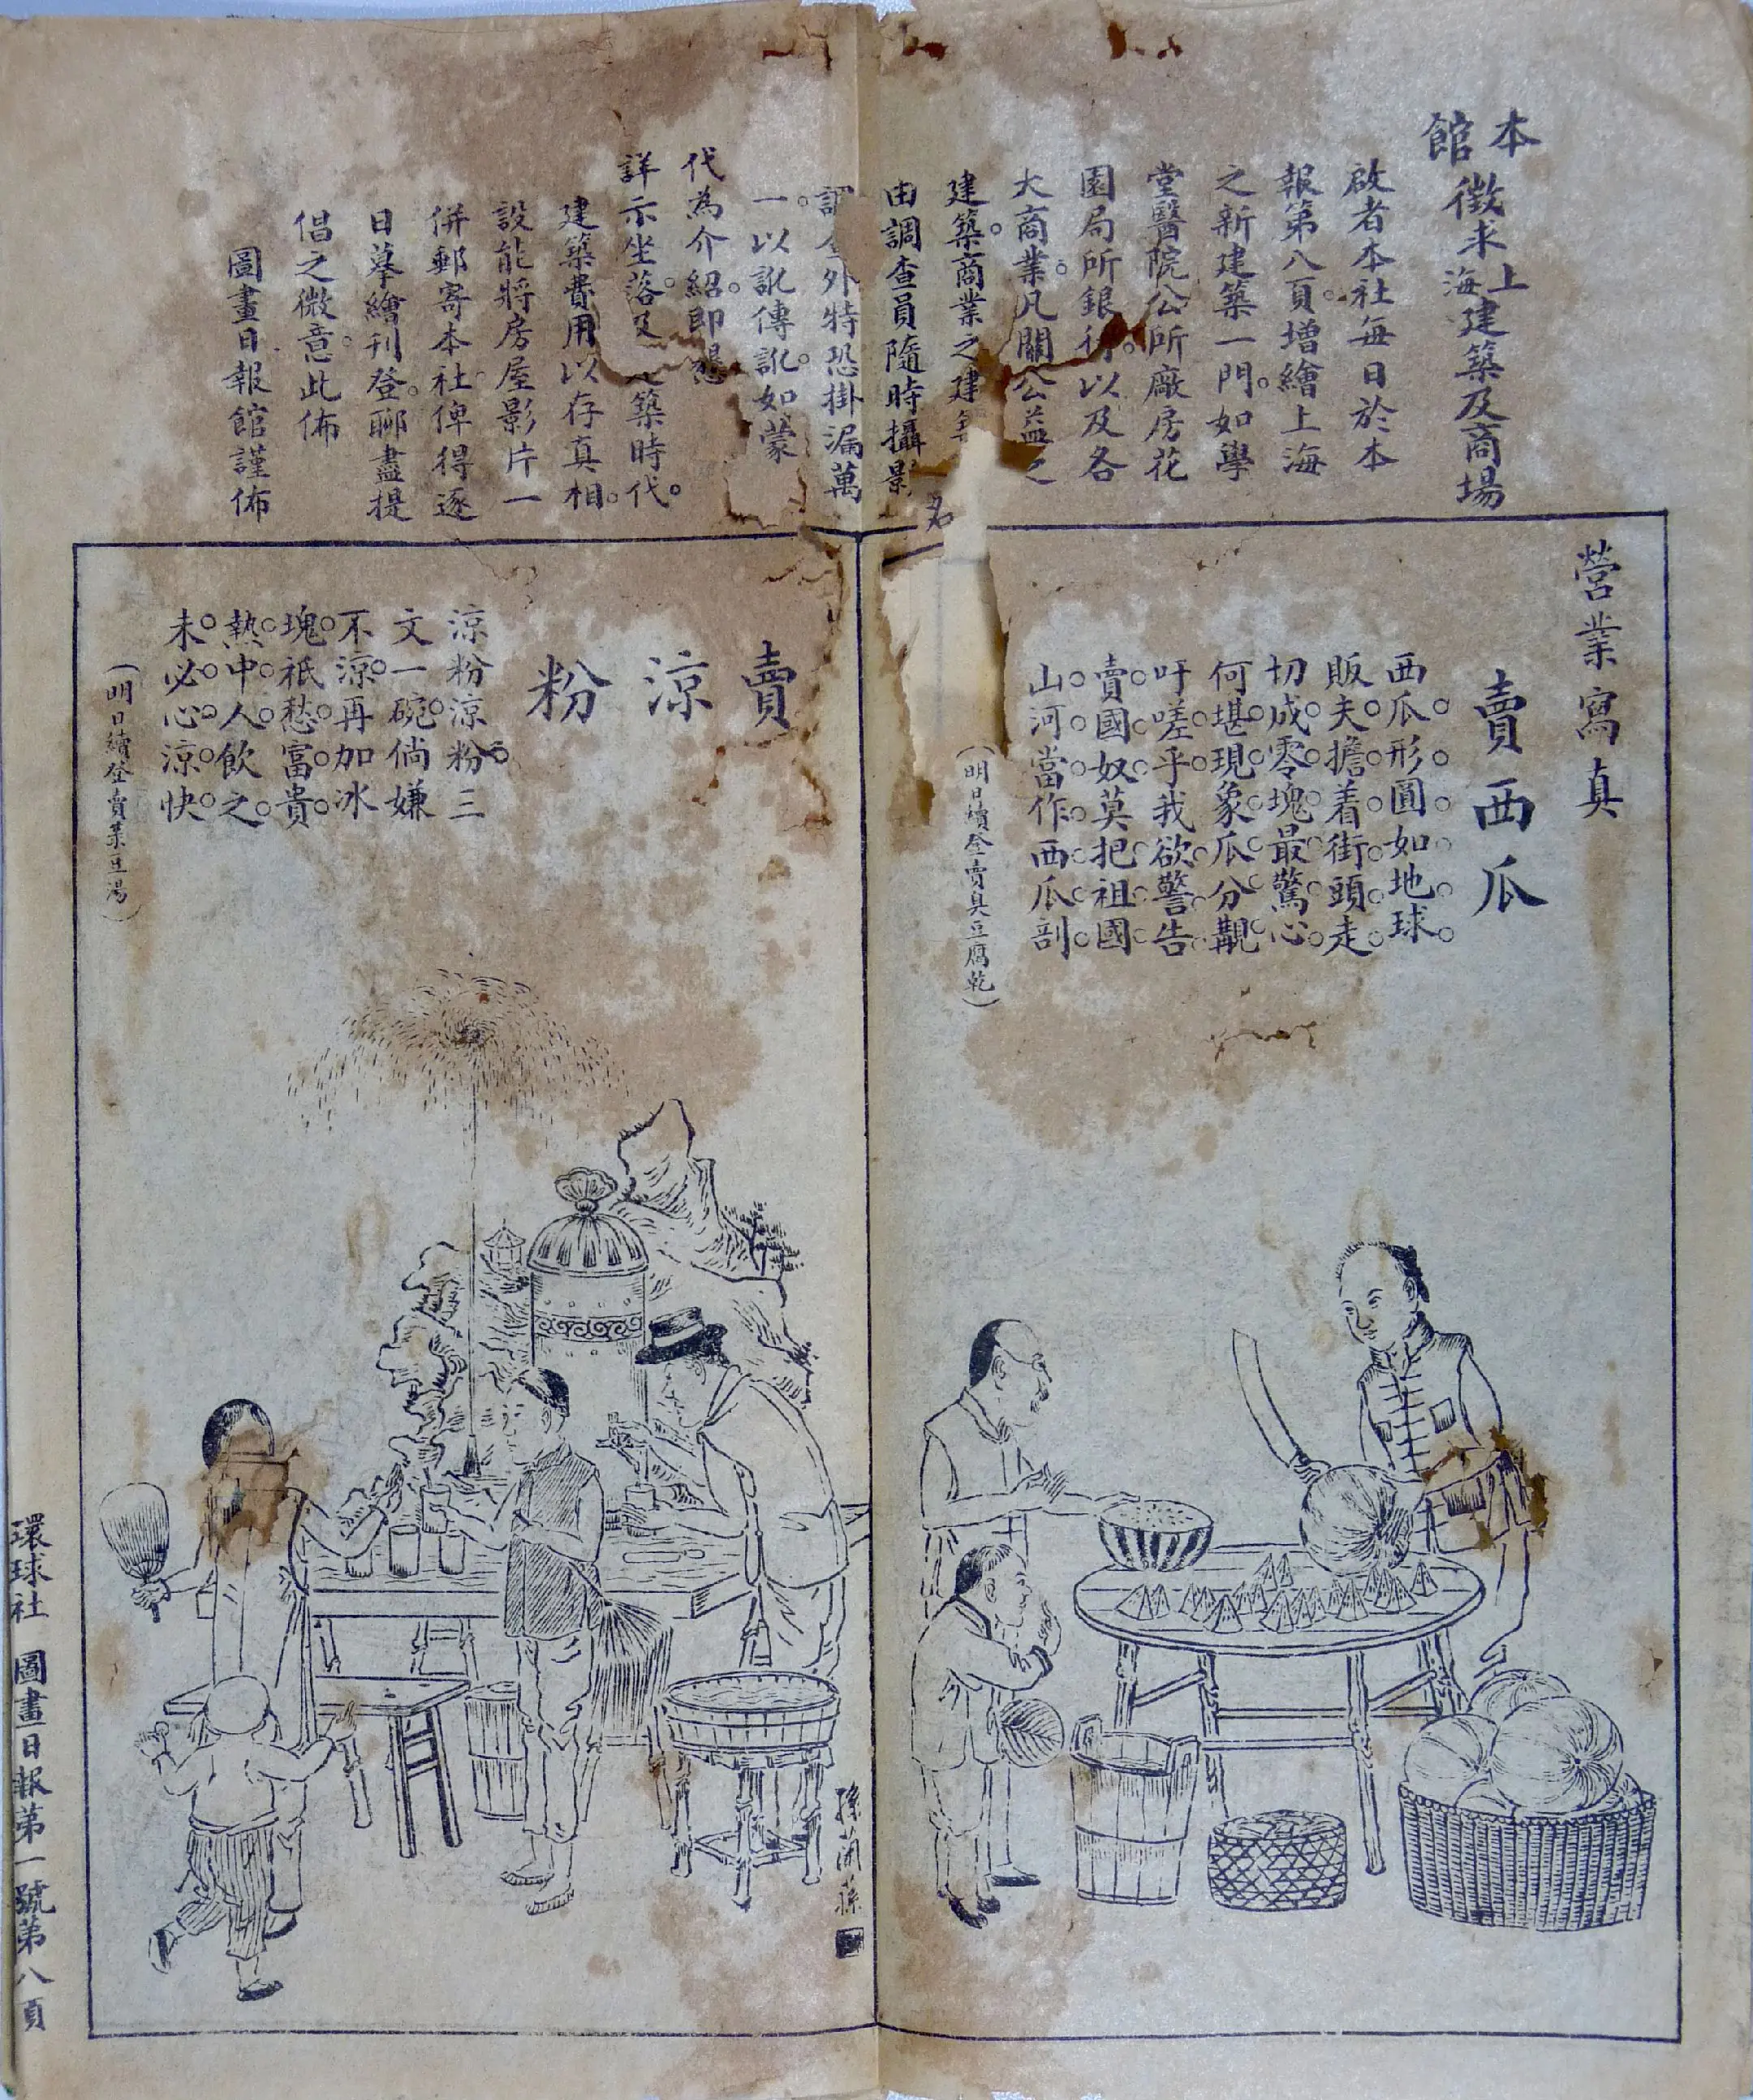 本館徵求上海建築及商場
啟者本社每日於本
報第八頁增繪上海
之新建築一門。如學
堂醫院公所廠房花
園局所銀行。以及各
大商業。凡關公益之
建築。商業之建
由調查員隨時攝影
外特恐掛漏萬
一。以訛傳訛。如蒙
代為介紹。即懇
詳示坐落。及 築時代。
建築費用以存真相。
設能將房屋影片一
併郵寄本社。俾得逐
日摹繪刊登。聊盡提
倡之微意。此佈
圖畫日報館謹佈
營業寫真
賣西瓜
西瓜形圓如地球。
販夫擔着街頭走。
切成零塊最驚心。
何堪現象瓜分覯。
吁嗟乎我欲警告
賣國奴莫把祖國
山河當作西瓜剖。
(明日續登賣臭豆腐乾)
賣涼粉
涼粉涼粉。三
文一碗。倘嫌
不涼。再加冰
塊。祇愁富貴
熱中人。飲之
未必心涼快。
(明日續登賣菉豆湯)
孫蘭蓀
環球社 圖畫日報第一號第八頁